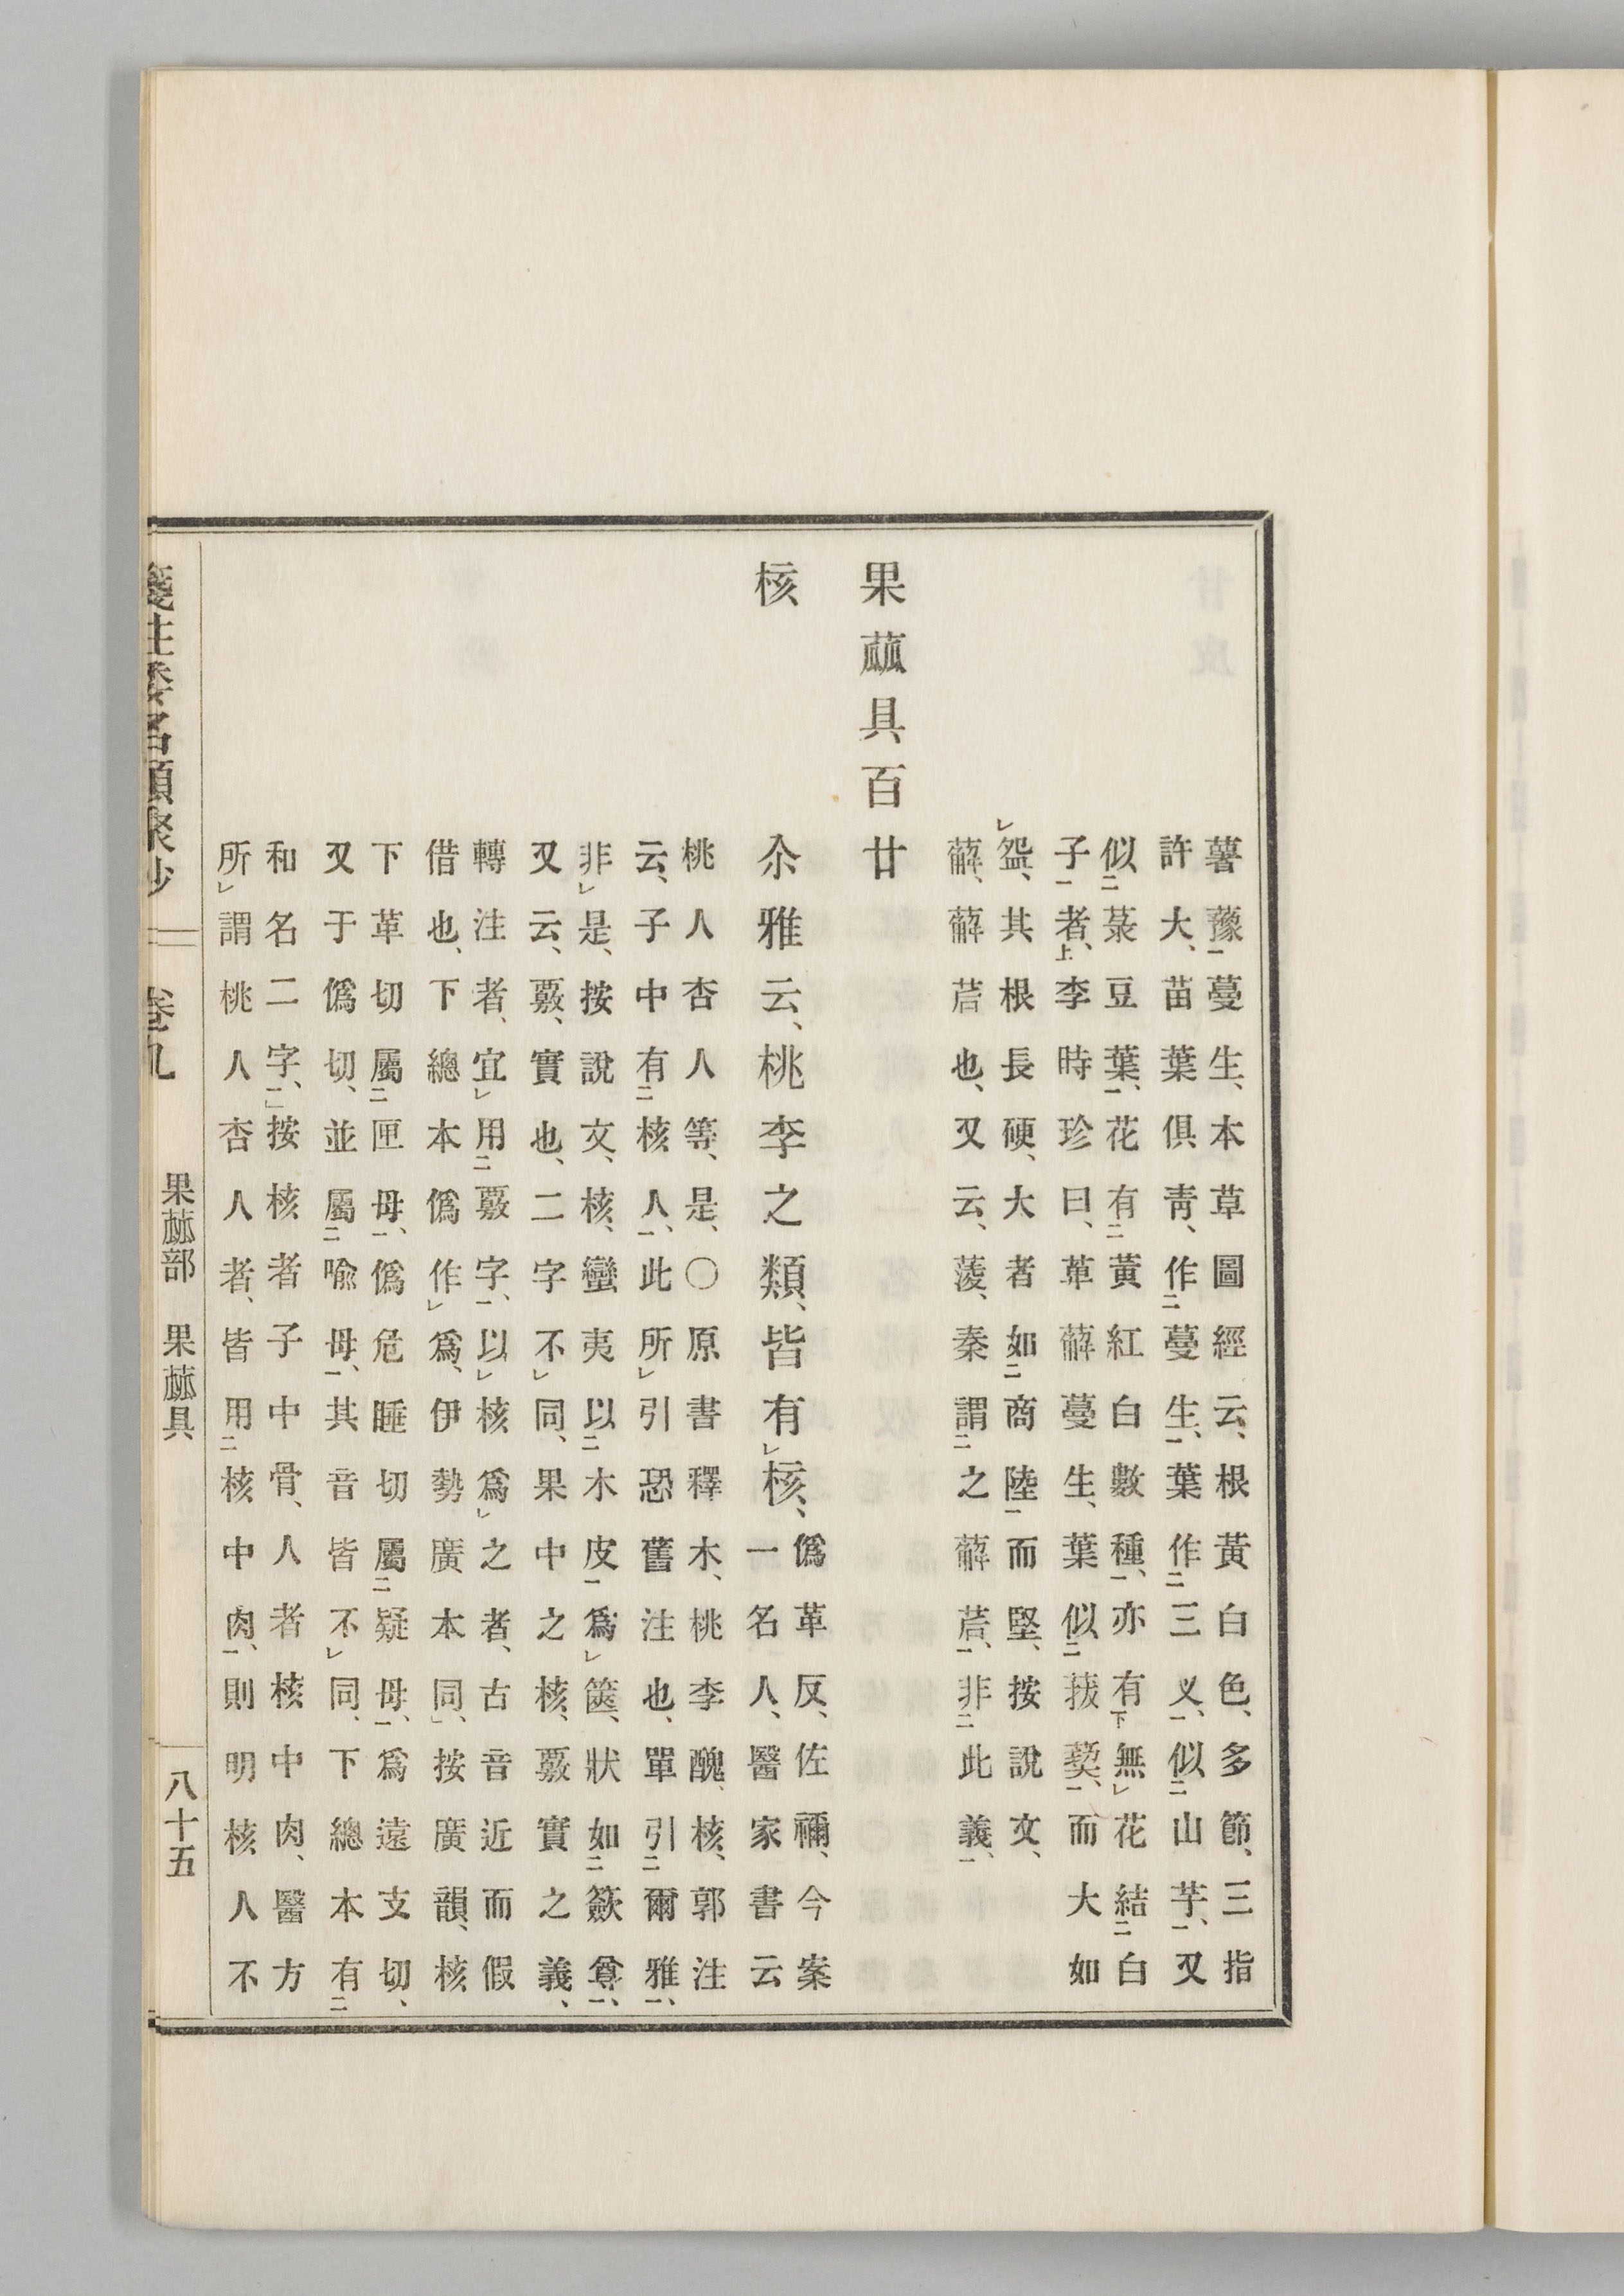 薯蕷一蔓生、本草圖經云、根黃白色、多節、三指
許大、苗葉俱靑、作二蔓生一、葉作二三乂一、似二山芋一、又
似二菉豆葉一、花有二黃紅白數種一、亦有下無レ花結二白
子一者上、李時珍曰、萆薢蔓生、葉似二菝葜一、而大如
レ盌、其根長硬、大者如二商陸一而堅、按說文、
薢、薢茩也、又云、蔆、秦謂二之薢茩一、非二此義一、
果蓏具百廿
核 尒雅云、桃李之類、皆有レ核、僞革反、佐禰、今案
一名人、醫家書云
桃人杏人等、是、〇原書釋木、桃李醜、核、郭注
云、子中有二核人一、此所レ引恐舊注也、單引二爾雅一、
非レ是、按說文、核、蠻夷以二木皮一爲レ篋、狀如二籢尊一、
又云、覈、實也、二字不レ同、果中之核、覈實之義、
轉注者、宜レ用二覈字一、以レ核爲レ之者、古音近而假
借也、下總本僞作レ爲、伊勢廣本同、」按廣韻、核
下革切屬二匣母一、僞危睡切屬二疑母一、爲遠支切、
又于僞切、並屬二喩母一、其音皆不レ同、下總本有二
和名二字一、」按核者子中骨、人者核中肉、醫方
所レ謂桃人杏人者、皆用二核中肉一、則明核人不
箋注倭名類聚抄 卷九 果蓏部 果蓏具 八十五